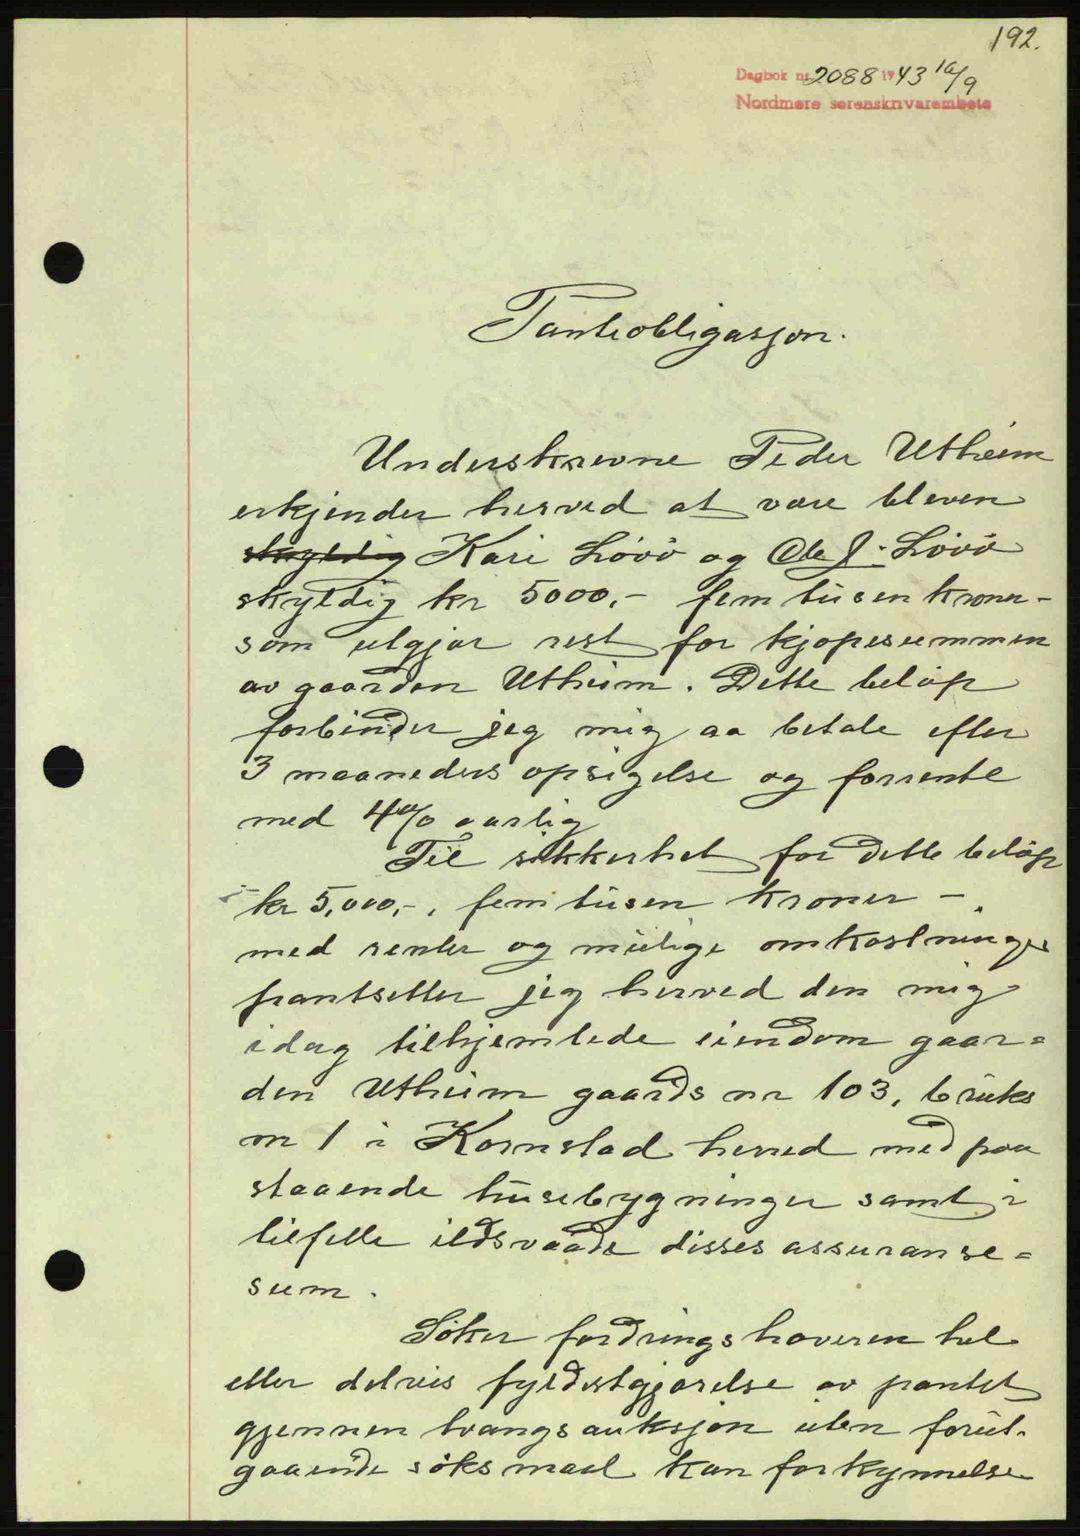 192.
Dagbok nr. 2088 1943 16/9
Nordmøre sorenskriverembete
Panteobligasjon.
Underskrevne Peder Utheim
erkjender herved at være bleven
skyldig Kari Løvö og Ole J. Løvö
skyldig kr 5000,- fem tusen kroner -
som utgjør rest for kjøpesummen
av gaarden Utheim. Dette beløp
forbinder jeg mig aa betale efter
3 maaneders opsigelse og forrente
med 4% aarlig
Til sikkerhet for dette beløp
kr 5,000,-, fem tusen kroner -
med renter og mulige omkostninger
pantsetter jeg herved den mig
idag tilhjemlede eiendom gaar=
den Utheim gaards nr 103, bruks
nr 1 i Kornstad herred med paa
staaende husebygninger samt i
tilfelle ildsvaade disses assuranse=
sum.
Søker fordringshaveren hel
eller delvis fyldestgjørelse av pantet
gjennem tvangsauksjon uten forut-
gaaende søksmaal kan forkynnelse